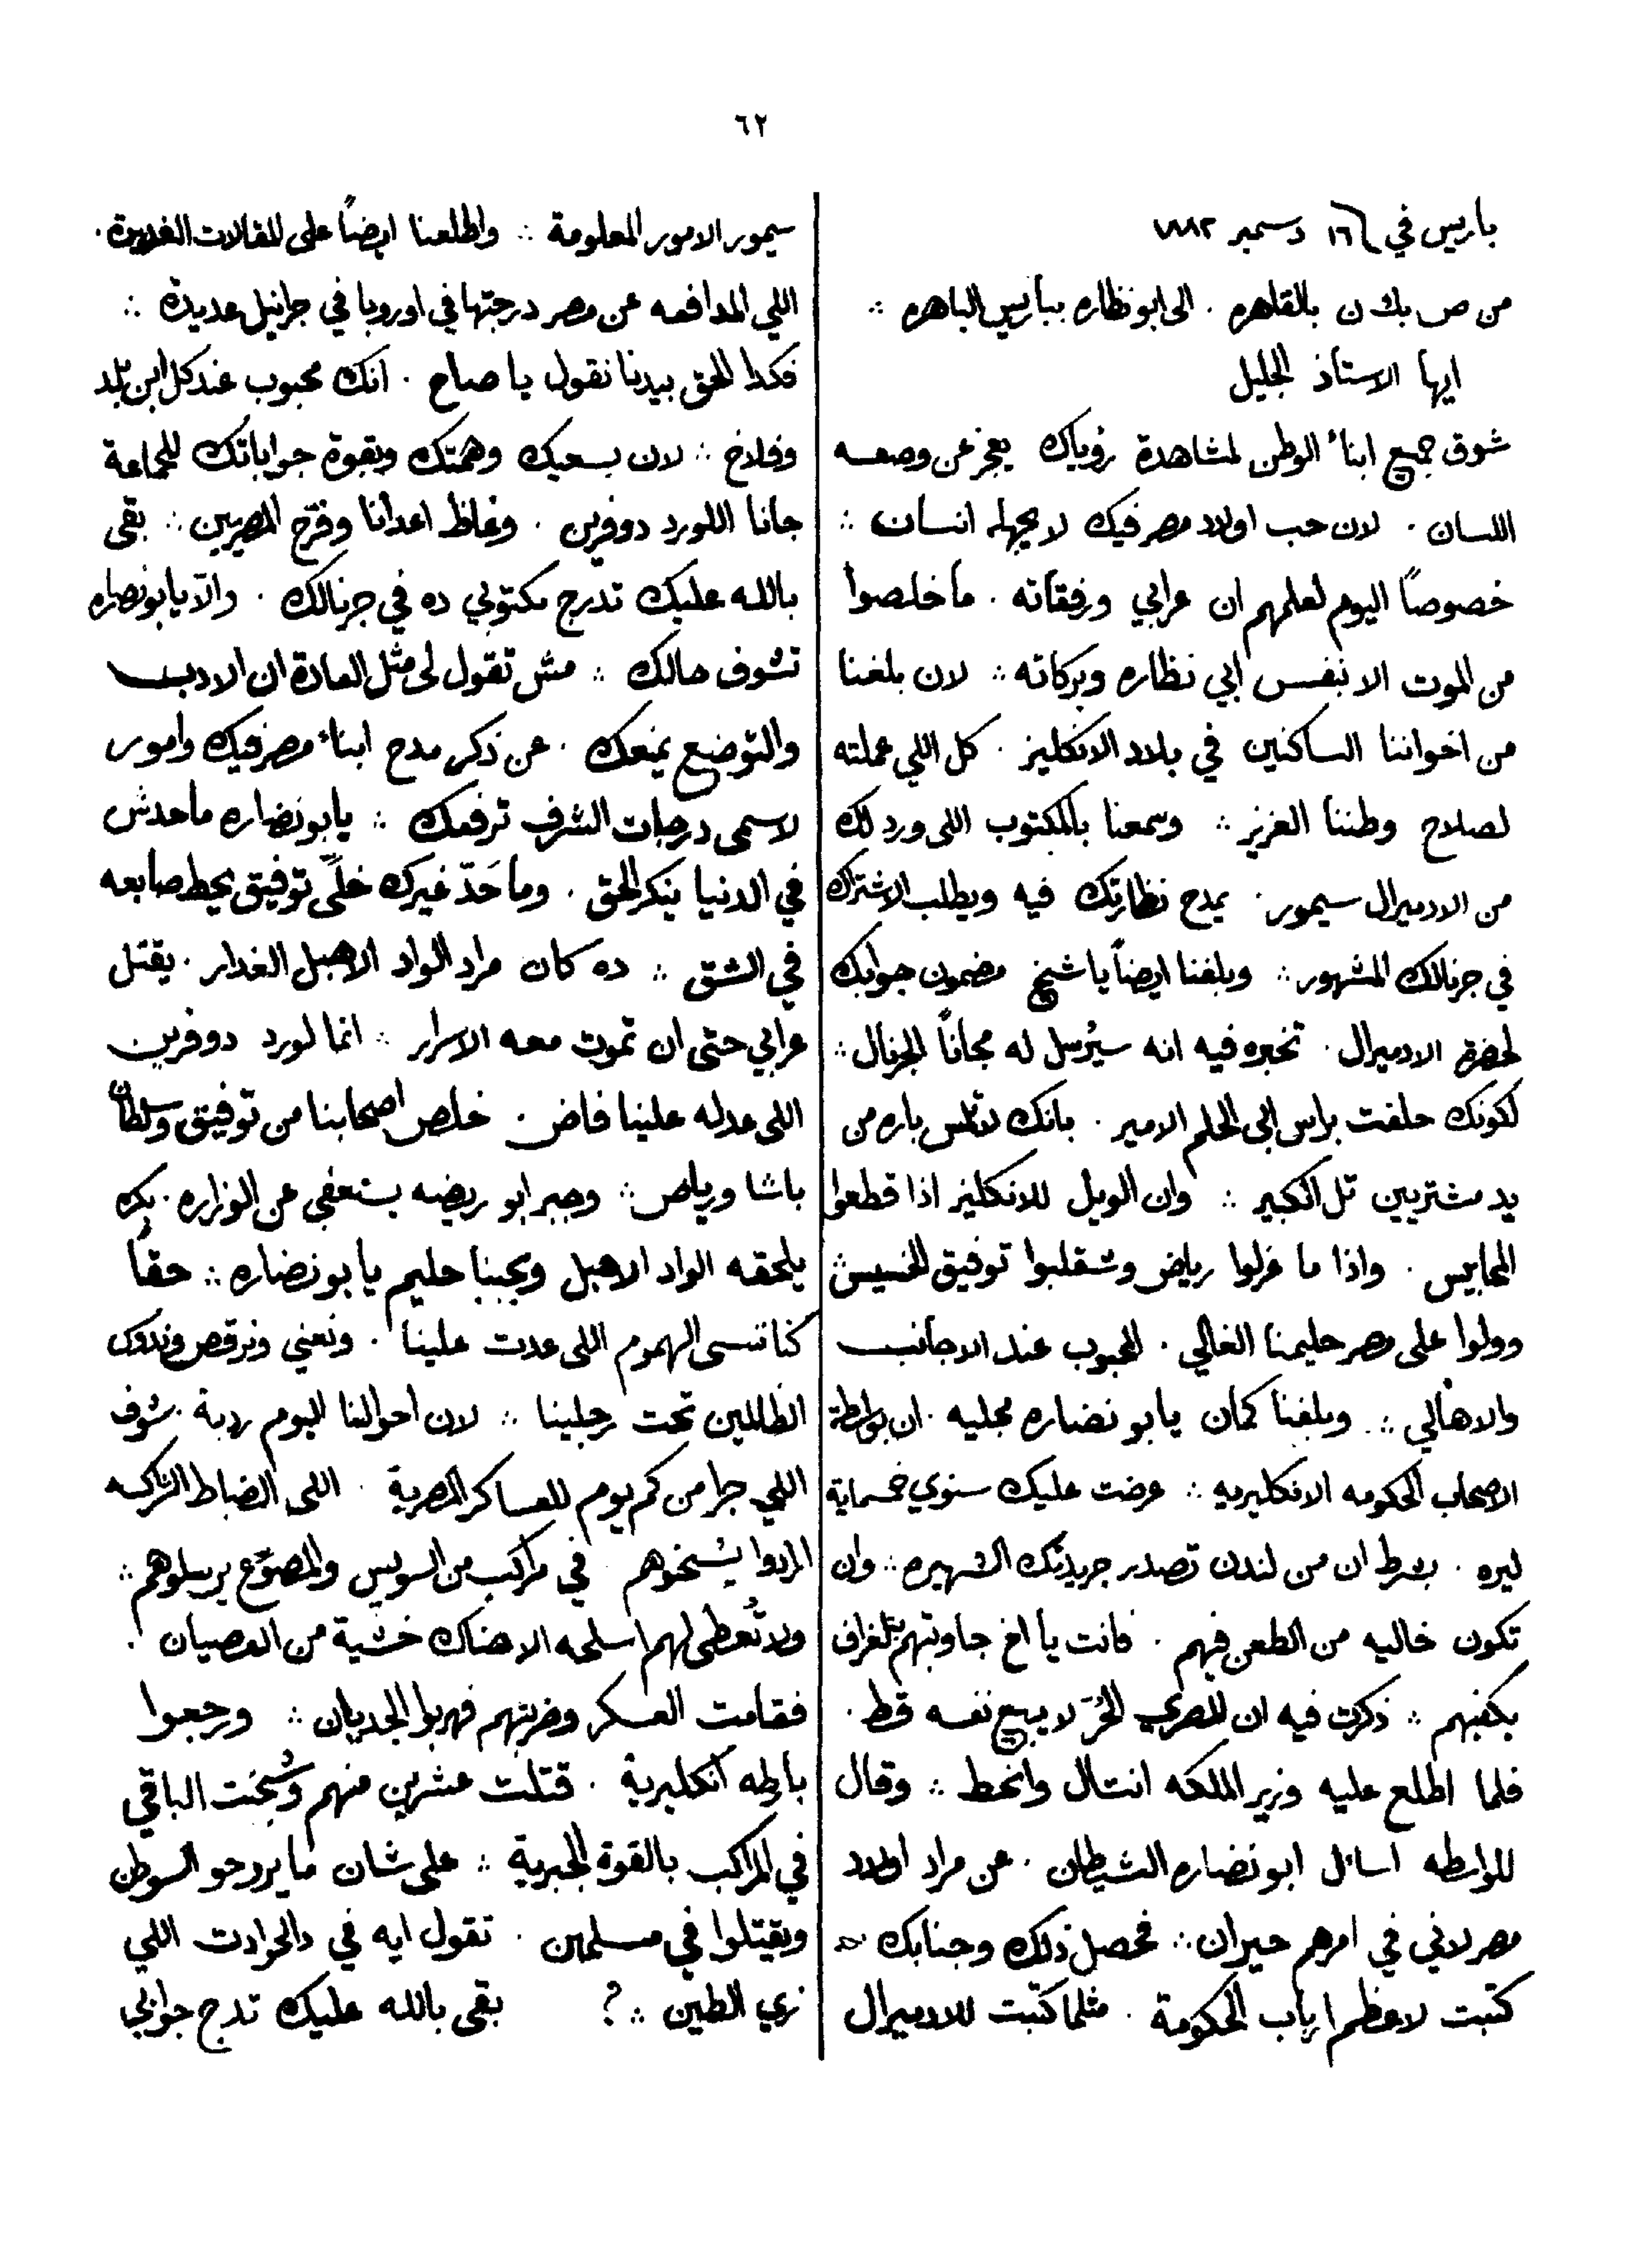 ٦٢
باريس في ١٦ دسمبر ١٨٨٢
من ص بك ن بالقاهره . الى ابو نظاره بباريس الباهره ∴
ايها الاستاذ الجليل
شوق جميع ابناء الوطن لمشاهدة رؤياك يعجز عن وصفه
اللسان . لان حب اولاد مصر فيك لا يجهله انسان ∴
خصوصاً اليوم لعلمهم ان عرابي ورفقاته . ما خلصوا
من الموت الا بنفس ابي نظاره وبركاته ∴ لان بلغنا
من اخواننا الساكنين في بلاد الانكليز . كل اللي عملته
لصلاح وطننا العزيز ∴ وسمعنا بالمكتوب اللى ورد لك
من الادميرال سيمور . يمدح نظارتك فيه ويطلب الاشتراك
في جرنالك المشهور ∴ وبلغنا ايضاً يا شيخ مضمون جوابك
لحضرة الادميرال . تخبره فيه انه سيُرسل له مجاناً الجرنال ∴
لكونك حلفت براس ابى الحلم الامير . بانك لا تلمس باره من
يد مشتريين تل الكبير ∴ وان الويل للانكليز اذا قطعوا
المحابيس . واذا ما عزلوا رياض وشقلبوا توفيق الخسيس
وولوا على مصر حليمنا الغالي . المحبوب عند الاجانب
والاهالي ∴ وبلغنا كمان يابو نضاره مجليه . ان بواسطة
الاصحاب الحكومه الانكليزيه ∴ عرضت عليك سنوي خمسماية
ليره . بشرط ان من لندن تصدر جريدتك الشهيره ∴ وان
تكون خاليه من الطعن فيهم . فانت يا اخ جاوبتهم بتلغراف
يكفيهم ∴ ذكرت فيه ان المصري الحُرّ لا يبيع نفسه قط .
فلما اطلع عليه وزير الملكه انتال وانحط ∴ وقال
للواسطه اسال ابو نضاره الشيطان . عن مراد اولاد
مصر لاني في امرهم حيران ∴ فحصل ذلك وجنابك
كتبت لاعظم ارباب الحكومة . مثلما كتبت للادميرال
سيمور الامور المعلومة ∴ واطلعنا ايضاً على المقالات الفريدة .
اللي المدافعه عن مصر درجتها في اوروبا في جرانيل عديدة ∴
فكدا الحق بيدنا نقول يا صاح . انك محبوب عند كل ابن بلد
وفلاح ∴ لان بسعيك وهمتك وبقوة جواباتك للجماعة
جانا اللورد دوفرين . وغاظ اعدانا وفرّح المصريين ∴ بقى
بالله عليك تدرج مكتوبي ده في جرنالك . والّا يابو نضاره
تشوف حالك ∴ مش تقول لى مثل العادة ان الادب
والتوضع يمنعك . عن ذكر مدح ابناء مصر فيك وامور
لاسمى درجات الشرف ترفعك ∴ يابو نضاره ماحدش
في الدنيا ينكر الحق . وما حَدّ غيرك خلّى توفيق يحط صابعه
في الشق ∴ ده كان مراد الواد الاهبل الغدار . يقتل
عرابي حتى ان تموت معه الاسرار ∴ انما لورد دوفرين
اللى عدله علينا فاض . خلص اصحابنا من توفيق وسلطان
باشا ورياض ∴ وجبر ابو ريضه يستعفي عن الوزاره . بكره
يلحقه الواد الاهبل ويجينا حليم يابو نضاره ∴ حقاً
كنا ننسى الهموم اللى عدت علينا . ونغني ونرقص وندوس
الظالمين تحت رجلينا ∴ لان احوالنا اليوم ردية . شوف
اللي جرا من كم يوم للعساكر المصرية . اللى الضباط التراكسه
ارادوا يشحنوهم . في مراكب من السويس والمصوّع يرسلوهم ∴
ولا تُعطى لهم اسلحه الا هناك خشية من العصيان .
فقامت العسكر وضربتهم فهربوا الجديان ∴ ورجعوا
باورطه انكليزية . قتلت عشرين منهم وشُحنت الباقي
في المراكب بالقوة الجبرية ∴ على شان ما يروحو السودان
ويقتلوا في مسلمين . تقول ايه في دالحوادت اللي
زي الطين ∴ ؟ بقى بالله عليك تدرج جوابي